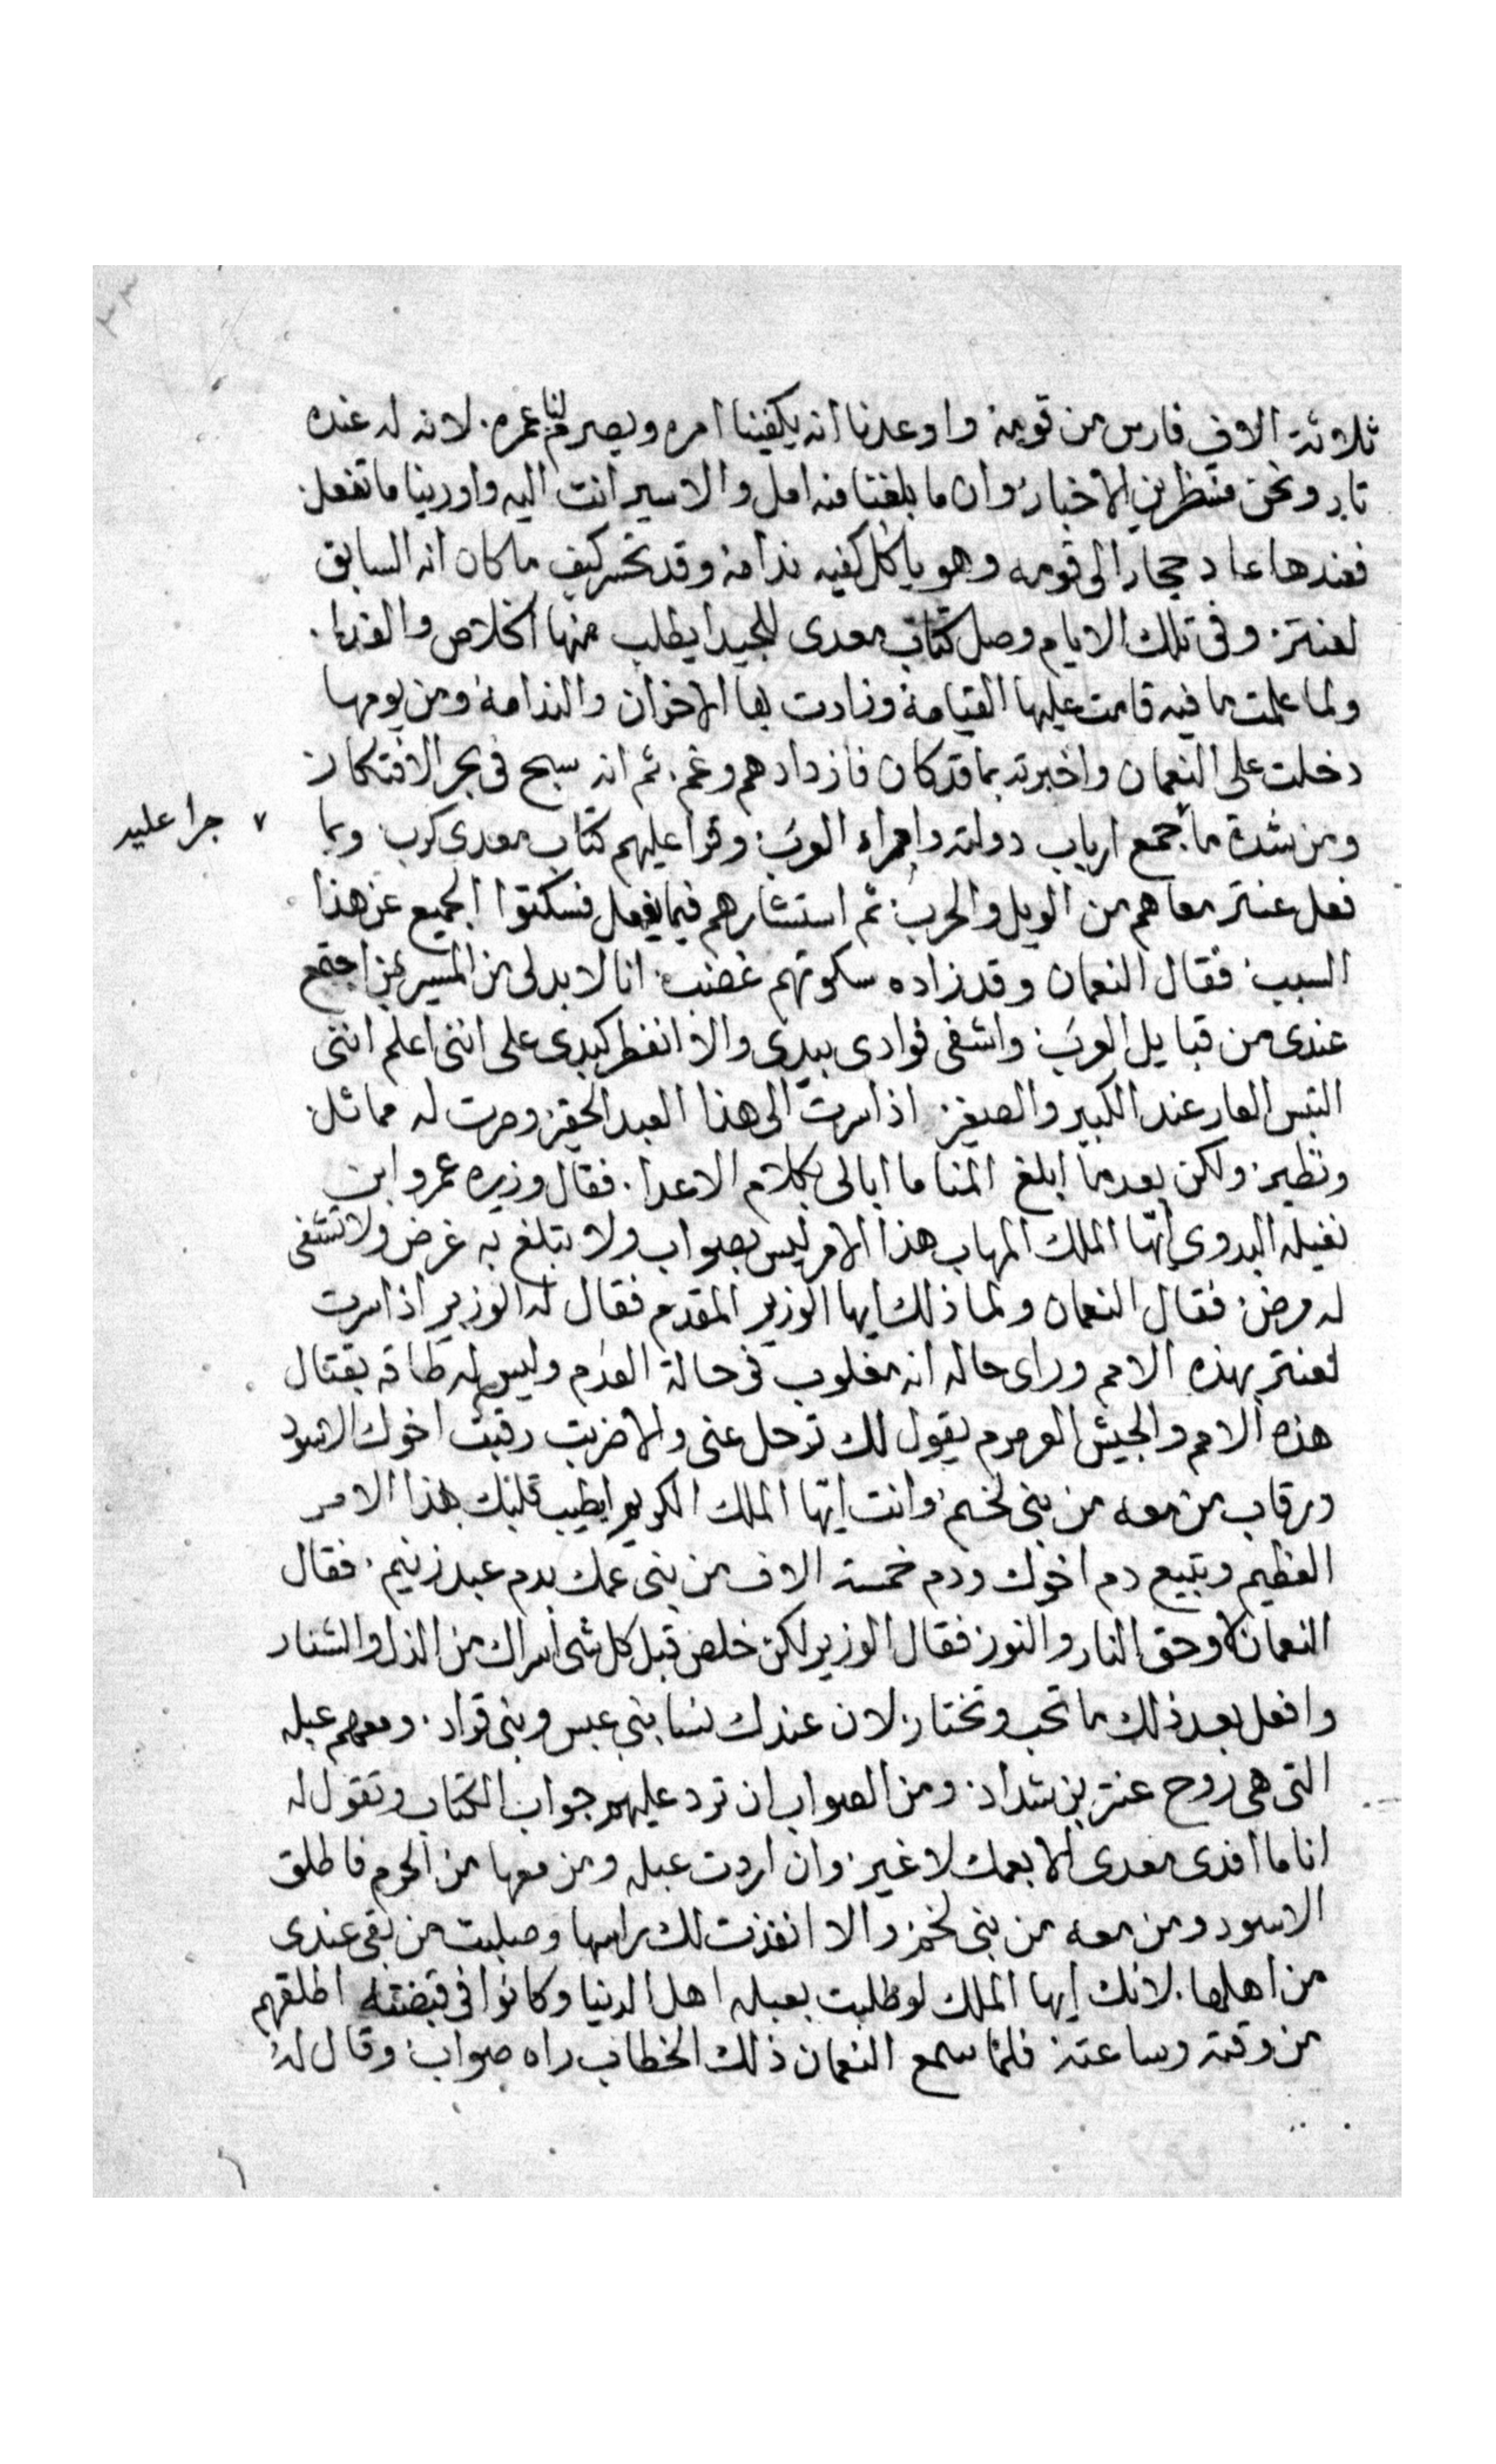 ثلاثة الاف فارس من قومه واوعدنا انه يكفينا امره ويصرم لنا عمره. لانه له عنده
تار ونحن منتظرين الاخبار وان ما بلغنا منه امل والا سير انت اليه واورينا ما تفعل.
فعندها عاد حجار الى قومه وهو ياكل كفيه ندامه وقد تحسر كيف ما كان انه السابق
لعنتر. وفى تلك الايام وصل كتاب معدى للجيدا يطلب منها الخلاص والفدا.
ولما علمت ما فيه قامت عليها القيامة وزادت بها الاحزان والندامة ومن يومها
دخلت على النعمان واخبرته بما قد كان فازداد هم وغم. ثم انه سبح فى بحر الافتكار
ومن شدة ما ٧ جرا عليه جمع ارباب دولته وامراء العرب. وقرا عليهم كتاب معدى كرب وبما
فعل عنتر معاهم من الويل والحرب. ثم استشارهم فيما يفعل فسكتوا الجميع عن هذا
السبب. فقال النعمان وقد زاده سكوتهم غضب. انا لا بد لى من المسير بمن اجتمع
عندى من قبايل العرب. واشفى فوادى بيدى والا انفطر كبدى على اننى اعلم اننى
التبس العار عند الكبير والصغير. اذا سرت الى هذا العبد الحقير وصرت له مماثل
ونظير. ولكن بعدما ابلغ المنا ما ابالى بكلام الاعدا. فقال وزيره عمرو ابن
نفيله البدوى ايها الملك المهاب هذا الامر ليس بصواب ولا تبلغ به غرض ولا تشفى
له مرض. فقال النعمان ولما ذلك ايها الوزير المقدم فقال له الوزير اذا سرت
لعنتر بهذه الامم وراى حاله انه مغلوب فى حالة العدم وليس له طاقه بقتال
هذه الامم والجيش العرمرم يقول لك ترحل عنى والا ضربت رقبت اخوك الاسود
ورقاب من معه من بنى لخم. وانت ايها الملك الكريم ايطيب قلبك بهذا الامر
العظيم وتبيع دم اخوك ودم خمسة الاف من بنى عمك بدم عبد زنيم. فقال
النعمان لا وحق النار والنور فقال الوزير لكن خلص قبل كل شى اسراك من الذل والشنار
وافعل بعد ذلك ما تحب وتختار. لان عندك نسا بنى عبس وبنى قراد. ومعهم عبله
التى هى روح عنتر بن شداد. ومن الصواب ان ترد عليهم جواب الكتاب وتقول له
انا ما افدى معدى الا بعمك لا غير. وان اردت عبله ومن معها من الحرم فاطلق
الاسود ومن معه من بنى لخم والا انفذت لك راسها وصلبت من بقى عندى
من اهلها. لانك ايها الملك لو طلبت بعبله اهل الدنيا وكانوا فى قبضته اطلقهم
من وقته وساعته. فلما سمع النعمان ذلك الخطاب راه صواب. وقال له